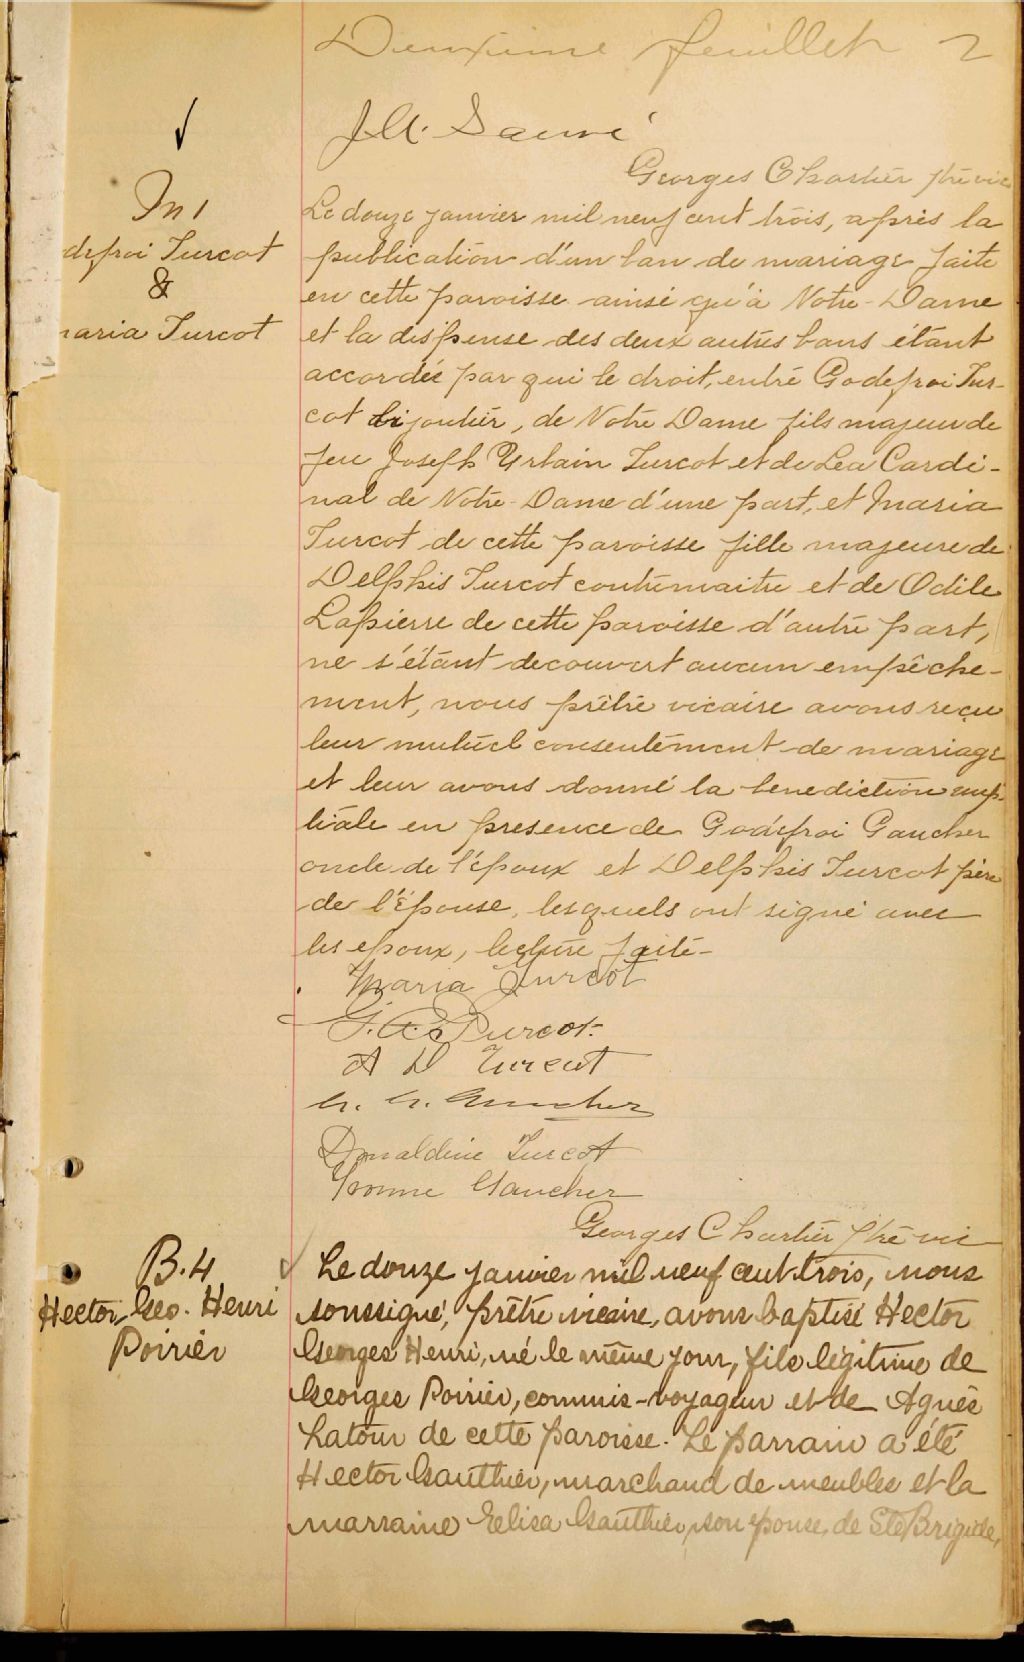 Deuxième feuillet 2
J.A. Sauvé
Georges Chartier ptre vic
M 1
defroi Turcot
&
maria Turcot
Le douze janvier mil neuf cent trois, après la
publication d'un ban de mariage faite
en cette paroisse ainsi qu'à Notre-Dame
et la dispense des deux autres bans étant
accordée par qui le droit, entre Godefroi Tur-
cot bijoutier, de Notre Dame fils majeur de
feu Joseph Urbain Turcot et de Lea Cardi-
nal de Notre-Dame d'une part, et Maria
Turcot de cette paroisse fille majeure de
Delphis Turcot contremaitre et de Odile
Lapierre de cette paroisse d'autre part,
ne s'étant decouvert aucun empêche-
ment, nous prêtre vicaire avons reçu
leur mutuel consentement de mariage
et leur avons donné la benediction nup-
tiale en presence de Godefroi Gaucher
oncle de l'époux et Delphis Turcot père
de l'épouse, lesquels ont signé avec
les epoux, lecture faite-
Maria Turcot
G. A. Turcot.
A D Turcot
Gaucher
Donaldine Turcot
Yvonne Gaucher
Georges Chartier ptre vic
B.4
Hector, Geo. Henri
Poirier
Le douze janvier mil neuf cent trois, nous
soussigné, prêtre vicaire, avons baptisé Hector
Georges Henri, né le même jour, fils légitime de
Georges Poirier, commis-voyageur et de Agnès
Latour de cette paroisse. Le parrain a été
Hector Gauthier, marchand de meubles et la
marraine Eelisa Gauthier, son épouse, de Ste Brigide,